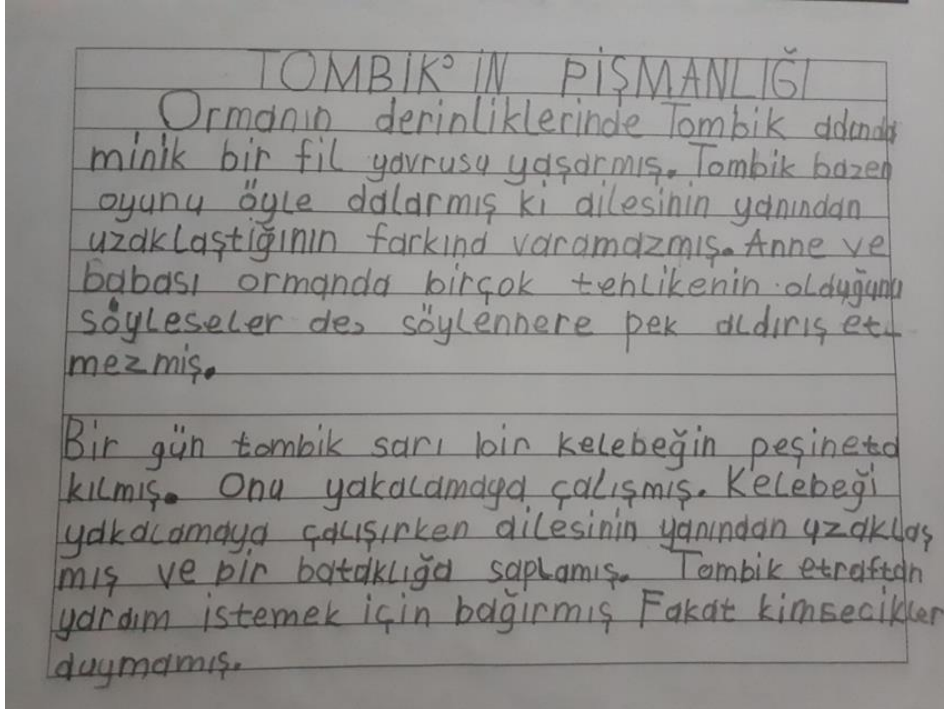 TOMBİK' İN PİŞMANLIĞI
Ormanın derinliklerinde Tombik adında
minik bir fil yavrusu yaşarmış. Tombik bazen
oyunu öyle dalarmış ki ailesinin yanından
uzaklaştiğının farkınd varamazmış. Anne ve
babası ormanda birçok tehlikenin olduğunu
söyleseler de, söylennere pek aldırış et-
mezmiş.
Bir gün tombik sarı bir kelebeğin peşineta
kılmış. Onu yakalamaya çalışmış. Kelebeği
yakalamaya çalışırken ailesinin yanından uzaklaş
mış ve bir bataklığa saplamış. Tombik etraftan
yardım istemek için bağırmış Fakat kimsecikler
duymamış.